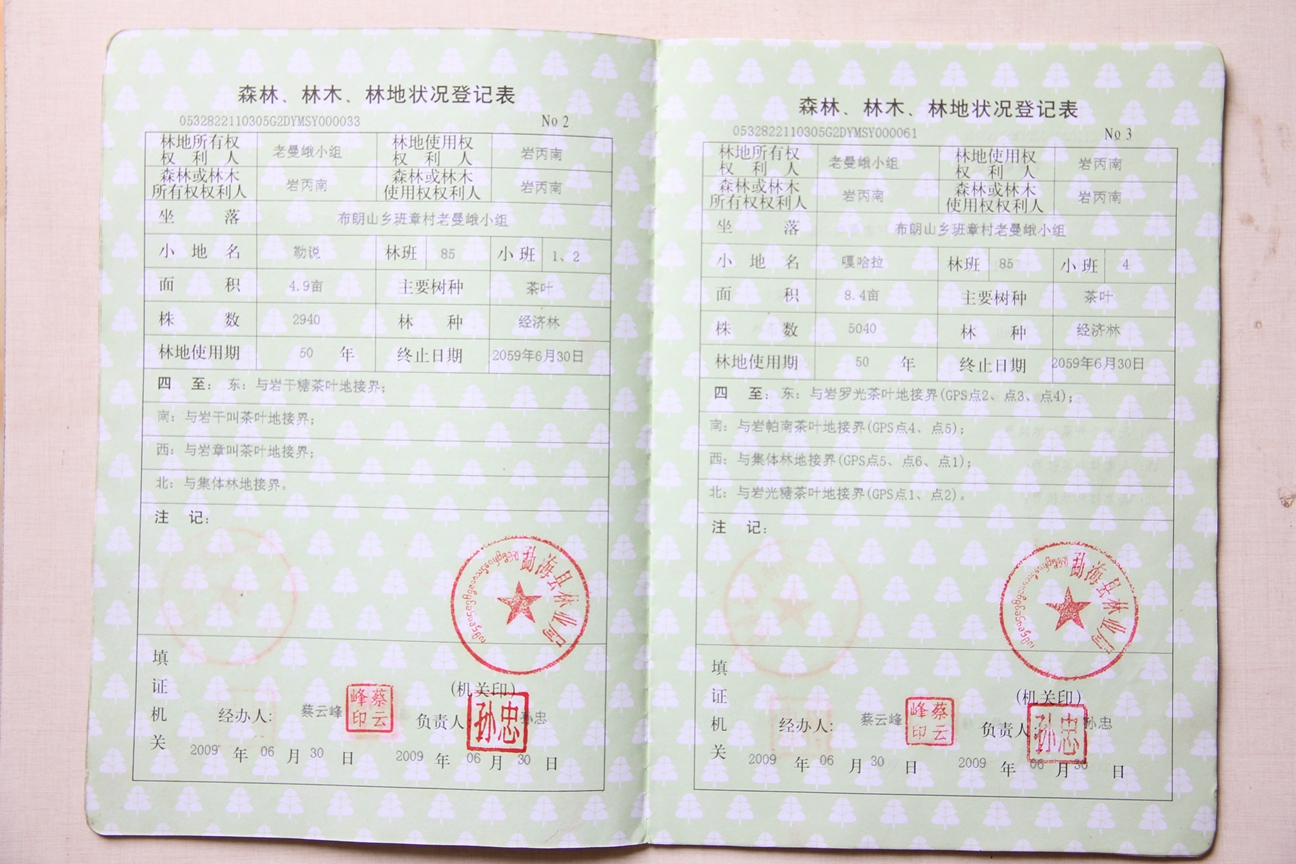 森林、林木、林地状况登记表
0532822110305G2DYMSY000033 No 2
林地所有权权利人 老曼峨小组 林地使用权权利人 岩丙南
森林或林木所有权权利人 岩丙南 森林或林木使用权权利人 岩丙南
坐落 布朗山乡班章村老曼峨小组
小地名 勒说 林班 85 小班 1、2
面积 4.9亩 主要树种 茶叶
株数 2940 林种 经济林
林地使用期 50 年 终止日期 2059年6月30日
四至：东：与岩干糖茶叶地接界；
南：与岩干叫茶叶地接界；
西：与岩章叫茶叶地接界；
北：与集体林地接界。
注记：
勐海县林业局
填证机关
(机关印)
经办人: 蔡云峰 蔡云峰印 负责人 孙忠 孙忠
2009 年 06 月 30 日 2009 年 06 月 30 日
森林、林木、林地状况登记表
0532822110305G2DYMSY000061 No 3
林地所有权权利人 老曼峨小组 林地使用权权利人 岩丙南
森林或林木所有权权利人 岩丙南 森林或林木使用权权利人 岩丙南
坐落 布朗山乡班章村老曼峨小组
小地名 嘎哈拉 林班 85 小班 4
面积 8.4亩 主要树种 茶叶
株数 5040 林种 经济林
林地使用期 50 年 终止日期 2059年6月30日
四至：东：与岩罗光茶叶地接界(GPS点2、点3、点4)；
南：与岩帕南茶叶地接界(GPS点4、点5)；
西：与集体林地接界(GPS点5、点6、点1)；
北：与岩光糖茶叶地接界(GPS点1、点2)。
注记：
勐海县林业局
填证机关
(机关印)
经办人: 蔡云峰 蔡云峰印 负责人: 孙忠 孙忠
2009 年 06 月 30 日 2009 年 06 月 30 日